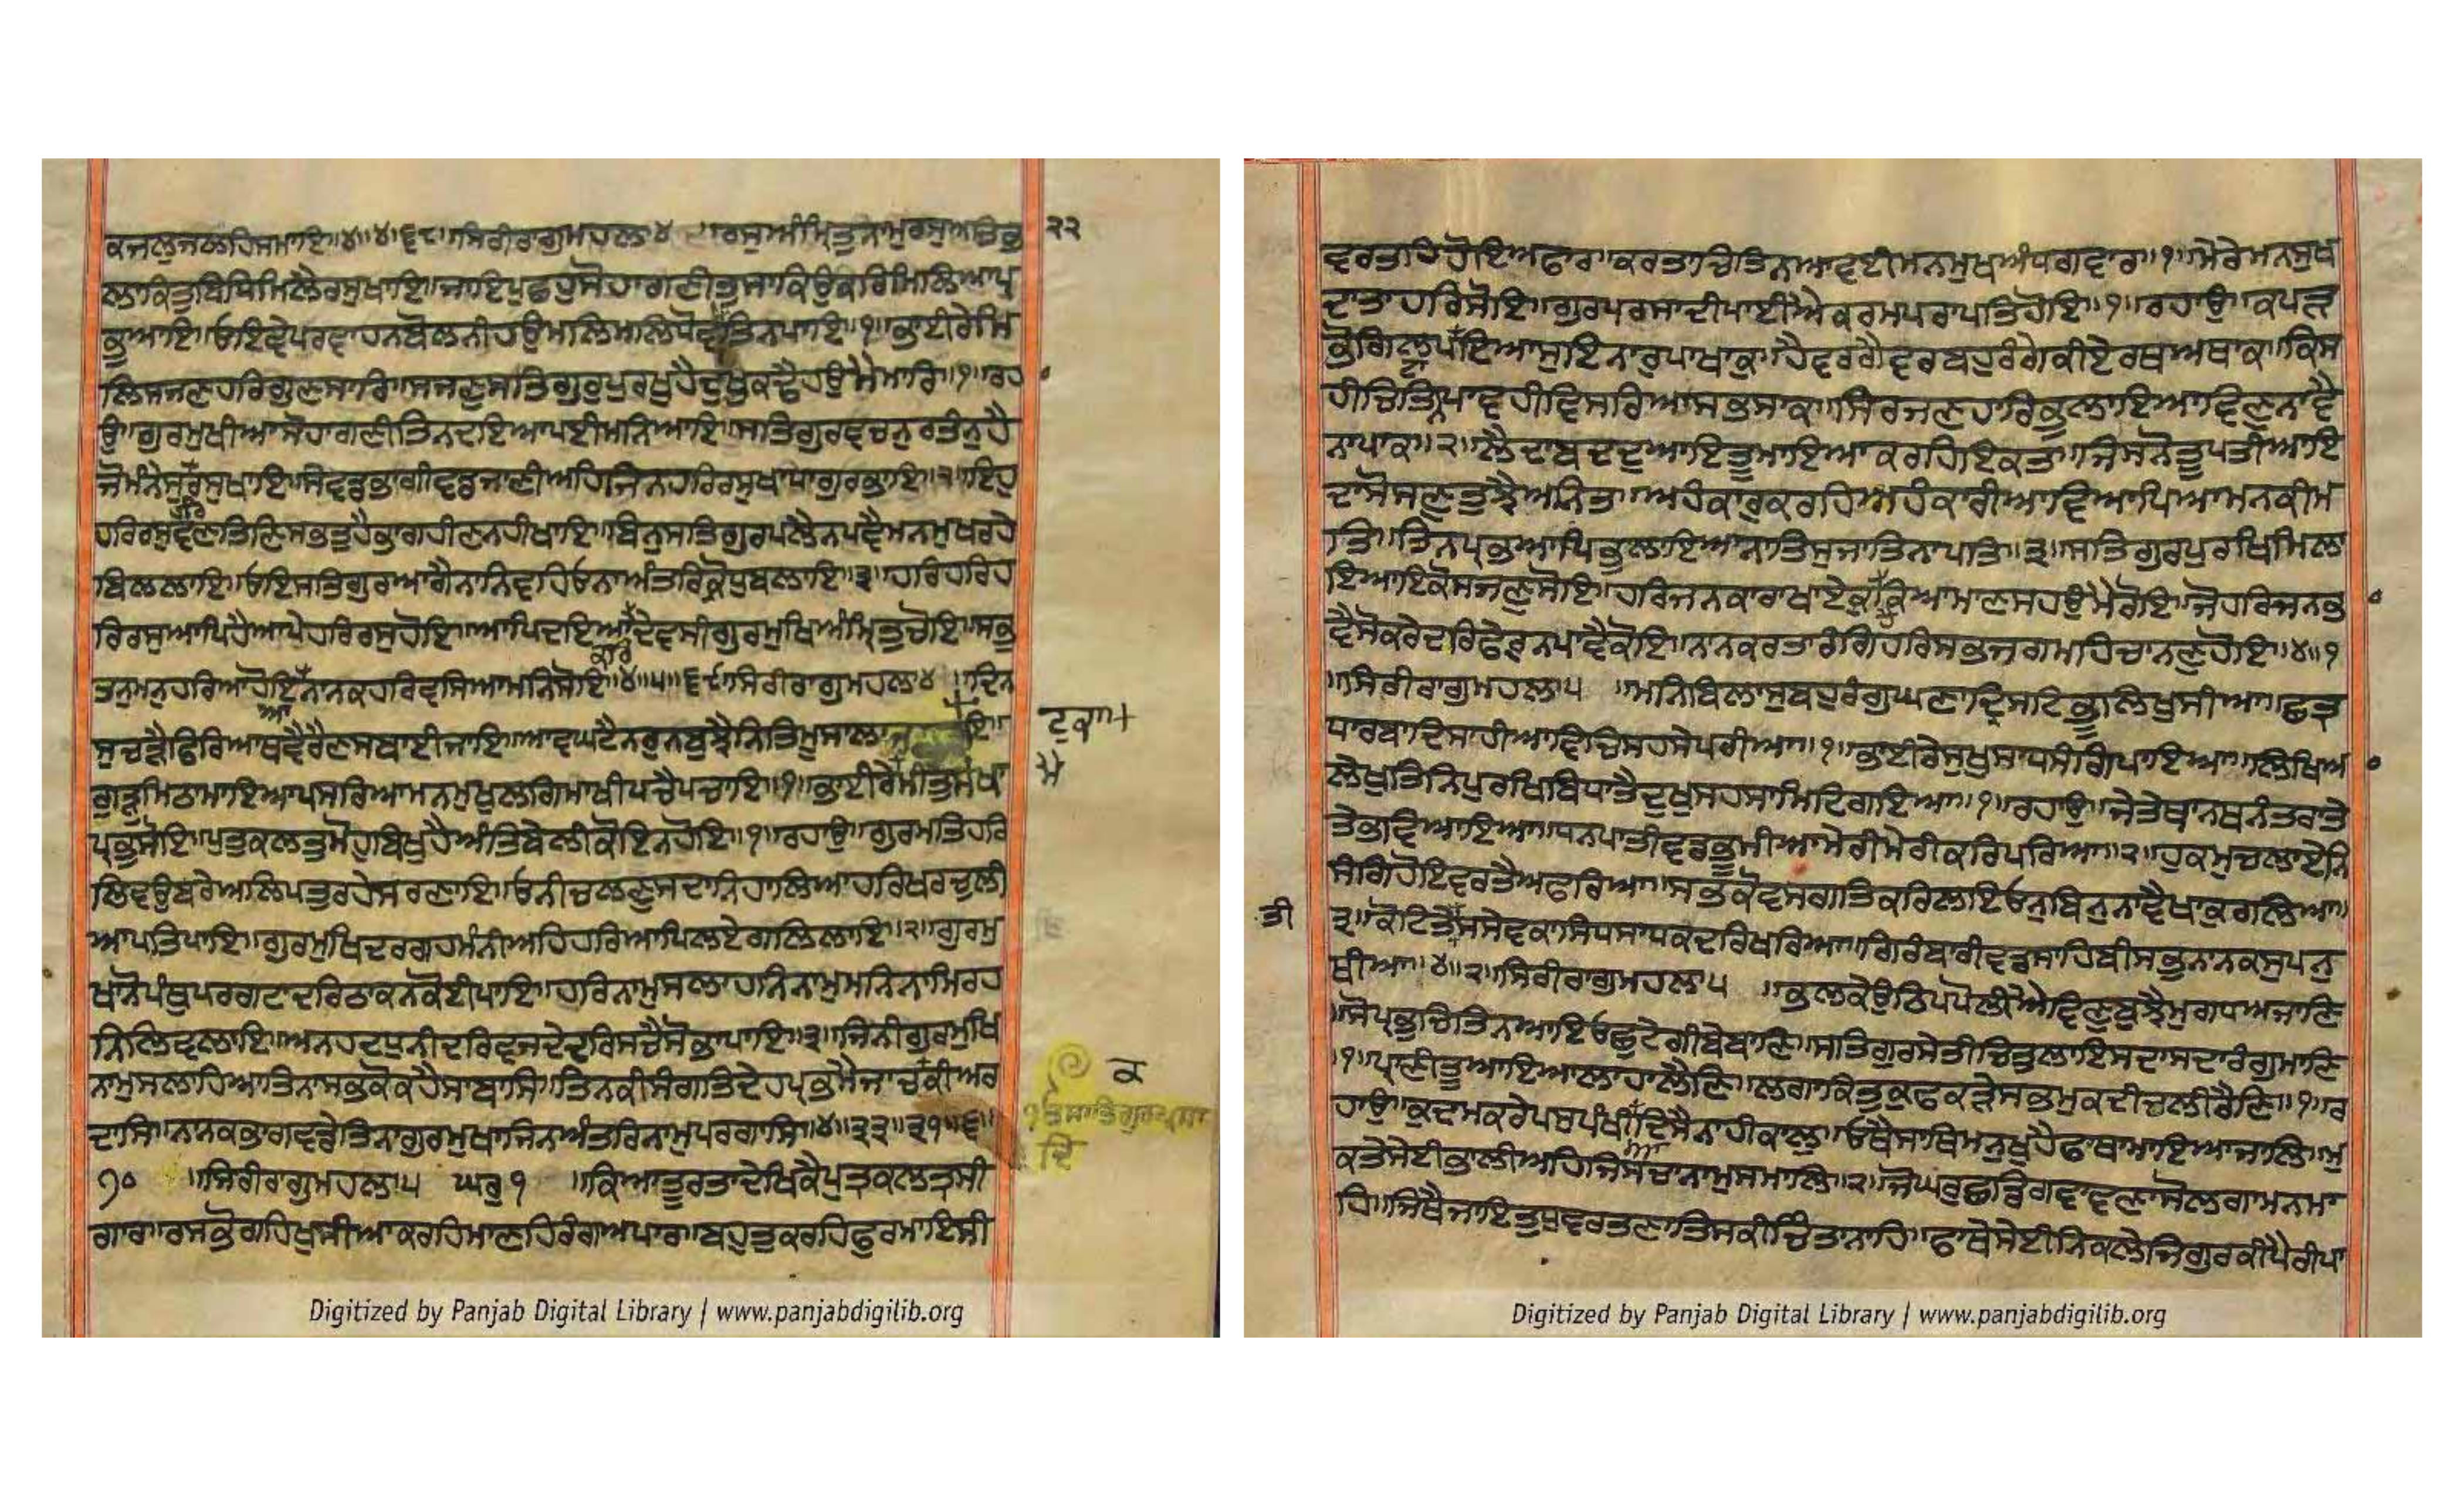 ਕਜਲੁਜਲਹਿਸਮਾਇ॥੪॥੪॥੬੮॥ਸਿਰੀਰਾਗੁਮਹਲਾ੪ ਰਸੁਅੰਮ੍ਰਿਤੁਨਾਮੁਰਸੁਅਤਿਭ ੨੨
ਲਾਕਿਤੁਬਿਧਿਮਿਲੈਰਸੁਖਾਇ॥ਜਾਇਪੁਛਹੁਸੋਹਾਗਣੀਤੁਸਾਕਿਉਕਰਿਮਿਲਿਆਪ੍ਰ
ਭੁਆਇ॥ਓਇਵੇਪਰਵਾਹਨਬੋਲਨੀਹਉਮਲਿਮਲਿਧੋਵਾਤਿਨਪਾਇ॥੧॥ਭਾਈਰੇਮਿ
ਲਿਸਜਣਹਰਿਗੁਣਸਾਰਿ॥ਸਜਣੁਸਤਿਗੁਰੁਪੁਰਖੁਹੈਦੁਖੁਕਢੈਹਉਮੈਮਾਰਿ॥੧॥ਰਹਾ
ਉ॥ਗੁਰਮੁਖੀਆਸੋਹਾਗਣੀਤਿਨਦਇਆਪਈਮਨਿਆਇ॥ਸਤਿਗੁਰਵਚਨੁਰਤੰਨੁਹੈ
ਜੋਮੰਨੇਸੁਹਰਿਰਸੁਖਾਇ॥ਸੇਵਡਭਾਗੀਵਡਜਾਣੀਅਹਿਜਿਨਹਰਿਰਸੁਖਾਧਾਗੁਰਭਾਇ॥੨॥ਇਹੁ
ਹਰਿਰਸੁਵਣਿਤਿਣਿਸਭਤੁਹੈਭਾਗਹੀਣਨਹੀਖਾਇ॥ਬਿਨੁਸਤਿਗੁਰਪਲੈਨਪਵੈਮਨਮੁਖਰਹੇ
ਬਿਲਲਾਇ॥ਓਇਸਤਿਗੁਰਆਗੈਨਾਨਿਵਹਿਓਨਾਅੰਤਰਿਕ੍ਰੋਧੁਬਲਾਇ॥੩॥ਹਰਿਹਰਿਹ
ਰਿਰਸੁਆਪਿਹੈਆਪੇਹਰਿਰਸੁਹੋਇ॥ਆਪਿਦਇਆਕਰਿਦੇਵਸੀਗੁਰਮੁਖਿਅੰਮ੍ਰਿਤੁਚੋਇ॥ਸਭੁ
ਤਨੁਮਨੁਹਰਿਆਹੋਇਆਨਾਨਕਹਰਿਵਸਿਆਮਨਿਸੋਇ॥੪॥੫॥੬੯॥ਸਿਰੀਰਾਗੁਮਹਲਾ੪ ॥ਦਿਨ
ਸੁਚੜੈਫਿਰਿਆਥਵੈਰੈਣਸਬਾਈਜਾਇ॥ਆਵਘਟੈਨਰੁਨਬੁਝੈਨਿਤਿਮੂਸਾਲਾਜੁ ਇ॥ ਟੁਕਾ+
ਗੁੜੁਮਿਠਾਮਾਇਆਪਸਰਿਆਮਨਮੁਖੁਲਗਿਮਾਖੀਪਚੈਪਚਾਇ॥੧॥ਭਾਈਰੇਮੈਮੀਤੁਸਖਾ ਮੈ
ਪ੍ਰਭੁਸੋਇ॥ਪੁਤੁਕਲਤੁਮੋਹੁਬਿਖੁਹੈਅੰਤਿਬੇਲੀਕੋਇਨਹੋਇ॥੧॥ਰਹਾਉ॥ਗੁਰਮਤਿਹਰਿ
ਲਿਵਉਬਰੇਅਲਿਪਤੁਰਹੇਸਰਣਾਇ॥ਓਨੀਚਲਣੁਸਦਾਨਿਹਾਲਿਆਹਰਿਖਰਚੁਲੀ
ਆਪਤਿਪਾਇ॥ਗੁਰਮੁਖਿਦਰਗਹਮੰਨੀਅਹਿਹਰਿਆਪਿਲਏਗਲਿਲਾਇ॥੨॥ਗੁਰਮੁ
ਖਾਨੋਪੰਥੁਪਰਗਟਾਦਰਿਠਾਕਨਕੋਈਪਾਇ॥ਹਰਿਨਾਮੁਸਲਾਹਨਿਨਾਮੁਮਨਿਨਾਮਿਰਹ
ਨਿਲਿਵਲਾਇ॥ਅਨਹਦਧੁਨੀਦਰਿਵਜਦੇਦਰਿਸਚੈਸੋਭਾਪਾਇ॥੩॥ਜਿਨੀਗੁਰਮੁਖਿ
ਨਾਮੁਸਲਾਹਿਆਤਿਨਾਸਭਕੋਕਹੈਸਾਬਾਸਿ॥ਤਿਨਕੀਸੰਗਤਿਦੇਹਪ੍ਰਭਮੈਜਾਚਕੀਅਰ ਕ
ਦਾਸਿ॥ਨਾਨਕਭਾਗਵਡੇਤਿਨਾਗੁਰਮੁਖਾਜਿਨਅੰਤਰਿਨਾਮੁਪਰਗਾਸਿ॥੪॥੩੩॥੩੧॥੬॥
੭੦ ॥ਸਿਰੀਰਾਗੁਮਹਲਾ੫ ਘਰੁ੧ ॥ਕਿਆਤੂਰਤਾਦੇਖਿਕੈਪੁਤ੍ਰਕਲਤ੍ਰਸੀ
ਗਾਰ॥ਰਸਭੋਗਹਿਖੁਸੀਆਕਰਹਿਮਾਣਹਿਰੰਗਅਪਾਰ॥ਬਹੁਤੁਕਰਹਿਫੁਰਮਾਇਸੀ
Digitized by Panjab Digital Library | www.panjabdigilib.org
ਵਰਤਹਿਹੋਇਅਫਾਰ॥ਕਰਤਾਚਿਤਿਨਆਵਈਮਨਮੁਖਅੰਧਗਵਾਰ॥੧॥ਮੇਰੇਮਨਸੁਖ
ਦਾਤਾਹਰਿਸੋਇ॥ਗੁਰਪਰਸਾਦੀਪਾਈਐਕਰਮਪਰਾਪਤਿਹੋਇ॥੧॥ਰਹਾਉ॥ਕਪੜ
ਭੋਗਿਲਪਟਾਇਆਸੁਇਨਾਰੁਪਾਖਾਕੁ॥ਹੈਵਰਗੈਵਰਬਹੁਰੰਗੇਕੀਏਰਥਅਥਾਕ॥ਕਿਸ
ਹੀਚਿਤਿਨਪਾਵਹੀਵਿਸਰਿਆਸਭਸਾਕ॥ਸਿਰਜਣਹਾਰਿਭੁਲਾਇਆਵਿਣੁਨਾਵੈ
ਨਾਪਾਕ॥੨॥ਲੈਦਾਬਦਦੁਆਇਤੂਮਾਇਆਕਰਹਿਇਕਤ॥ਜਿਸਨੋਤੂਪਤੀਆਇ
ਦਾਸੋਸਣੁਤੁਝੈਅਨਿਤ॥ਅਹੰਕਾਰੁਕਰਹਿਅਹੰਕਾਰੀਆਵਿਆਪਿਆਮਨਕੀਮ
ਤਿ॥ਤਿਨਪ੍ਰਭਆਪਿਭੁਲਾਇਆਨਾਤਿਸੁਜਾਤਿਨਾਪਤਿ॥੩॥ਸਤਿਗੁਰਪੁਰਖਿਮਿਲਾ
ਇਆਇਕੋਸਜਣੁਸੋਇ॥ਹਰਿਜਨਕਾਰਾਖਾਏਕੁਕਿਆਮਾਣਸਹਉਮੈਰੋਇ॥ਜੋਹਰਿਜਨਭ
ਵੈਸੋਕਰੇਦਰਿਫੇਰੁਨਪਾਵੈਕੋਇ॥ਨਾਨਕਰਤਾਰੰਗਿਹਰਿਸਭਜਗਮਹਿਚਾਨਣੁਹੋਇ॥੪॥੧
॥ਸਿਰੀਰਾਗੁਮਹਲਾ੫ ॥ਮਨਿਬਿਲਾਸੁਬਹੁਰੰਗੁਘਣਾਦ੍ਰਿਸਟਿਭੂਲਿਖੁਸੀਆ॥ਛਤ੍ਰ
ਧਾਰਬਾਦਿਸਾਹੀਆਵਿਚਿਸਹਸੇਪਰੀਆ॥੧॥ਭਾਈਰੇਸੁਖੁਸਾਧਸੰਗਿਪਾਇਆ॥ਲਿਖਿਅ
ਲੇਖੁਤਿਨਿਪੁਰਖਿਬਿਧਾਤੈਦੁਖੁਸਹਸਾਮਿਟਿਗਇਆ॥੧॥ਰਹਾਉ॥ਜੇਤੇਥਾਨਥਨੰਤਰਾਤੇ
ਤੇਭਵਿਆਇਆ॥ਧਨਪਾਤੀਵਡਭੂਮੀਆਮੇਰੀਮੇਰੀਕਰਿਪਰਿਆ॥੨॥ਹੁਕਮੁਚਲਾਏਨਿ
ਸੰਗਿਹੋਇਵਰਤੈਅਫਰਿਆ॥ਸਭੁਕੋਵਸਗਤਿਕਰਿਲਇਓਨੁਬਿਨੁਨਾਵੈਖਾਕੁਰਲਿਆ॥
ਤੀ ੩॥ਕੋਟਿਤੇਤੀਸਸੇਵਕਾਸਿਧਸਾਧਕਦਰਿਖਰਿਆ॥ਗਿਰੰਬਾਰੀਵਡਸਾਹਿਬੀਸਭੁਨਾਨਕਸੁਪਨੁ
ਥੀਆ॥੪॥੨॥ਸਿਰੀਰਾਗੁਮਹਲਾ੫ ॥ਭਲਕੇਉਠਿਪਪੋਲੀਐਵਿਣੁਬੁਝੈਮੁਗਧਅਜਾਣਿ
॥ਸੋਪ੍ਰਭੁਚਿਤਿਨਆਇਓਛੁਟੈਗੀਬੇਬਾਣਿ॥ਸਤਿਗੁਰਸੇਤੀਚਿਤੁਲਾਇਸਦਾਸਦਾਰੰਗੁਮਾਣਿ
੧॥ਪ੍ਰਾਣੀਤੂਆਇਆਲਾਹਾਲੈਣਿ॥ਲਗਾਕਿਤੁਕੁਫਕੜੇਸਭਮੁਕਦੀਚਲੀਰੈਣਿ॥੧॥ਰ
ਹਾਉ॥ਕੁਦਮਕਰੇਪਸੁਪੰਖੀਆਦਿਸੈਨਾਹੀਕਾਲੁ॥ਓਥੈਸਾਥਿਮਨੁਖੁਹੈਫਾਥਾਮਾਇਆਜਾਲਿ॥ਮੁ
ਕਤੇਸੇਈਭਾਲੀਅਹਿਜਿਸਚਾਨਾਮੁਸਮਾਲਿ॥੨॥ਜੋਘਰੁਛਡਿਗਵਾਵਣਾਸੋਲਗਾਮਨਮਾ
ਹਿ॥ਜਿਥੈਜਾਇਤੁਧੁਵਰਤਣਾਤਿਸਕੀਚਿੰਤਾਨਾਹਿ॥ਫਾਥੇਸੇਈਨਿਕਲੇਜਿਗੁਰਕੀਪੈਰੀਪਾ
Digitized by Panjab Digital Library | www.panjabdigilib.org